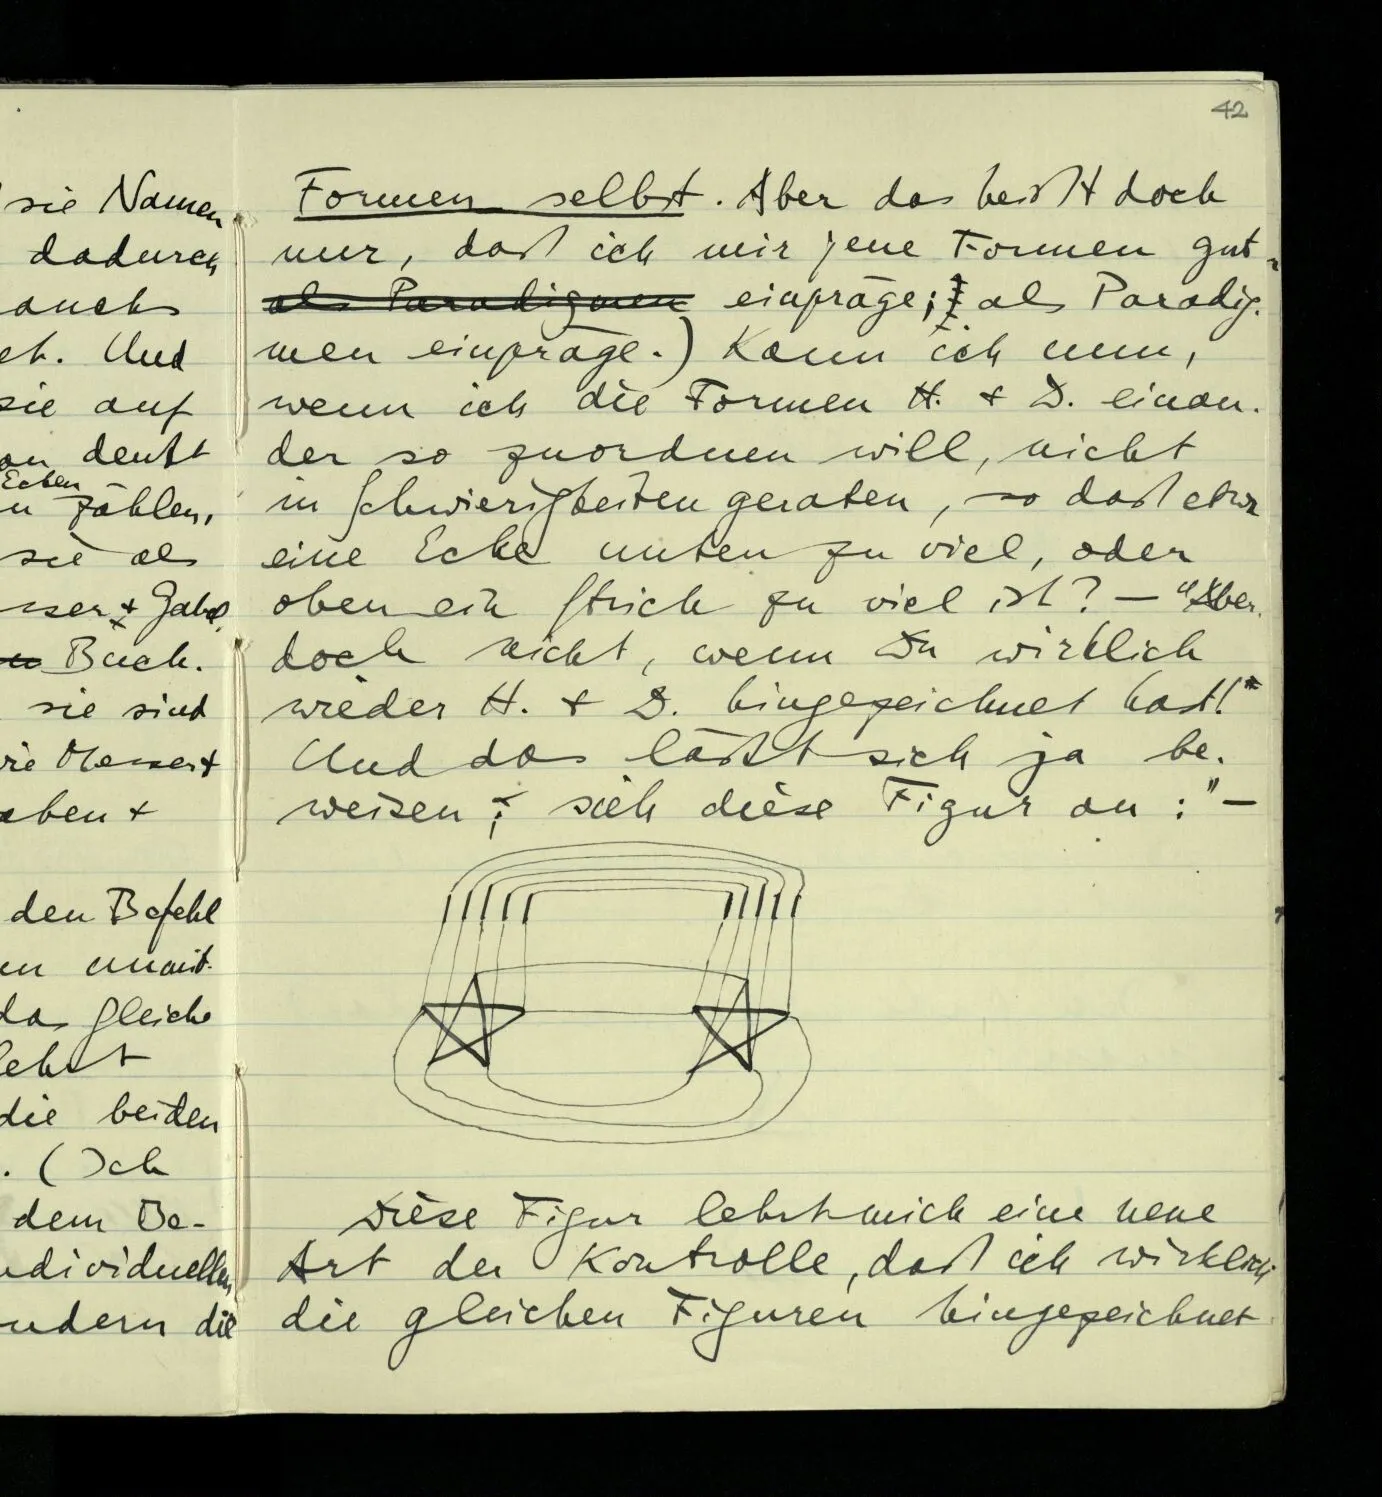 42
sie Namen
dadurch
auch
Und
sie auf
denkt
Ecken
zählen,
sie als
+ Gabel,
Buch.
sie sind
Messer +
aben +
den Befehl
unmit-
das gleiche
lehrt
die beiden
. (Ich
dem Be-
ndividuellen
ndern die
Formen selbst. Aber das heißt doch
nur, daß ich mir jene Formen gut
als Paradigmen einpräge; als Paradig-
men einpräge.) Kann ich nun,
wenn ich die Formen H. + D. einan-
der so zuordnen will, nicht
in Schwierigkeiten geraten, so daß etwa
eine Ecke unten zu viel, oder
oben ein Strich zu viel ist? – "Aber
doch nicht, wenn Du wirklich
wieder H. + D. hingezeichnet hast!
Und das läßt sich ja be-
weisen; sieh diese Figur an:" –
Diese Figur lehrt mich eine neue
Art der Kontrolle, daß ich wirklich
die gleichen Figuren hingezeichnet